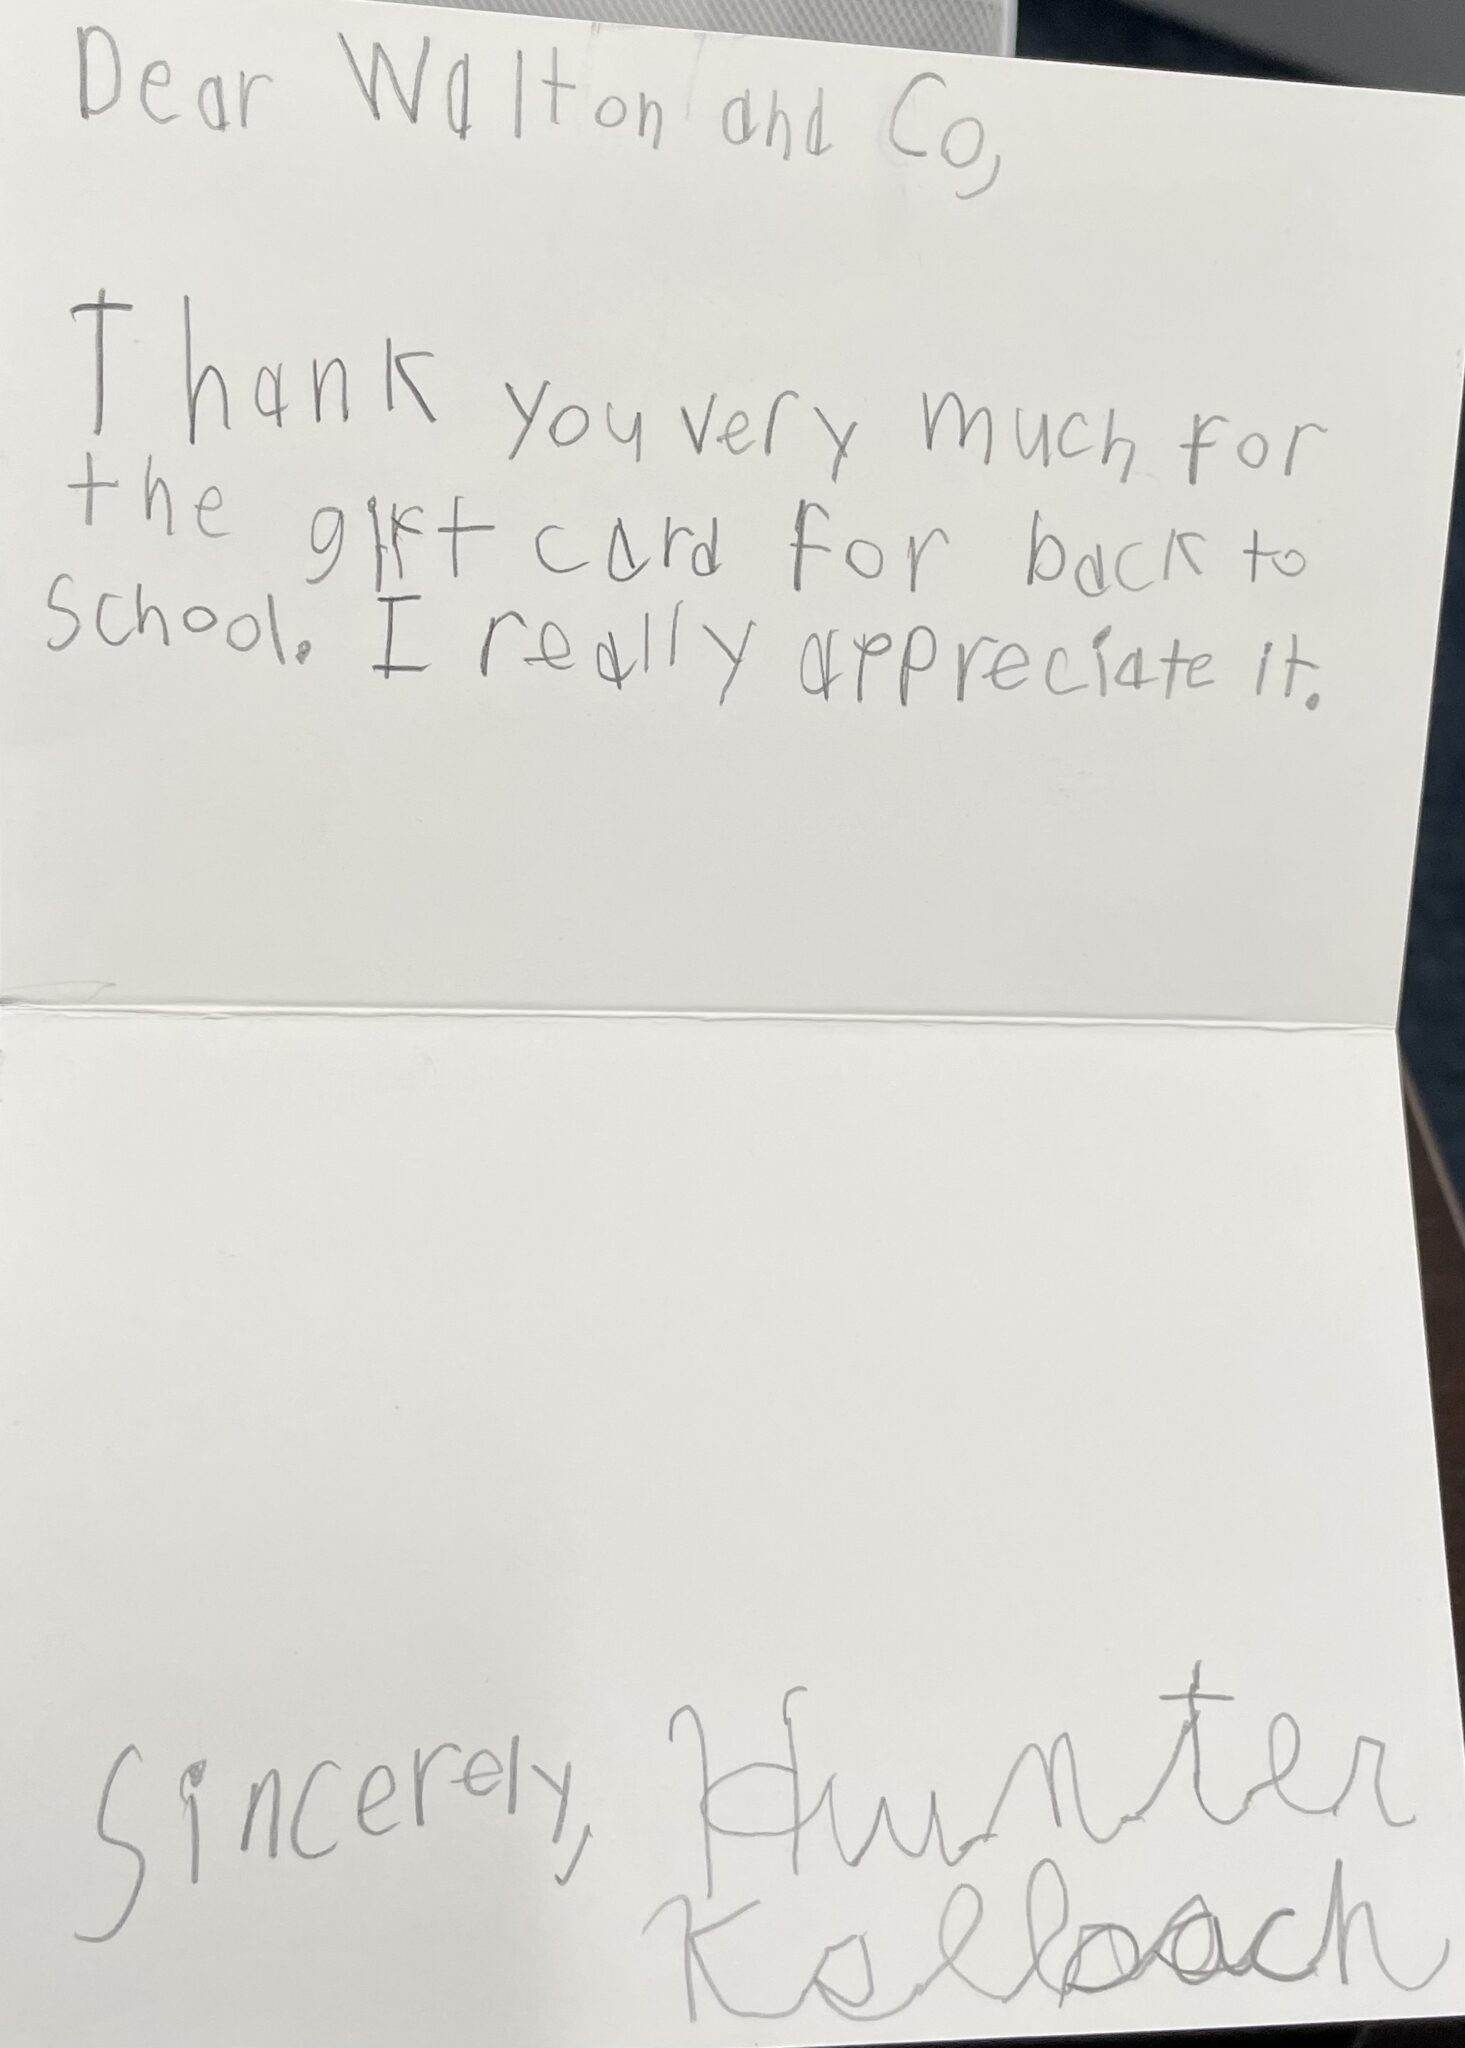 Dear Walton and Co,
Thank you very much for
the gift card for back to
school. I really appreciate it.
Sincerely, Hunter
Kalbach